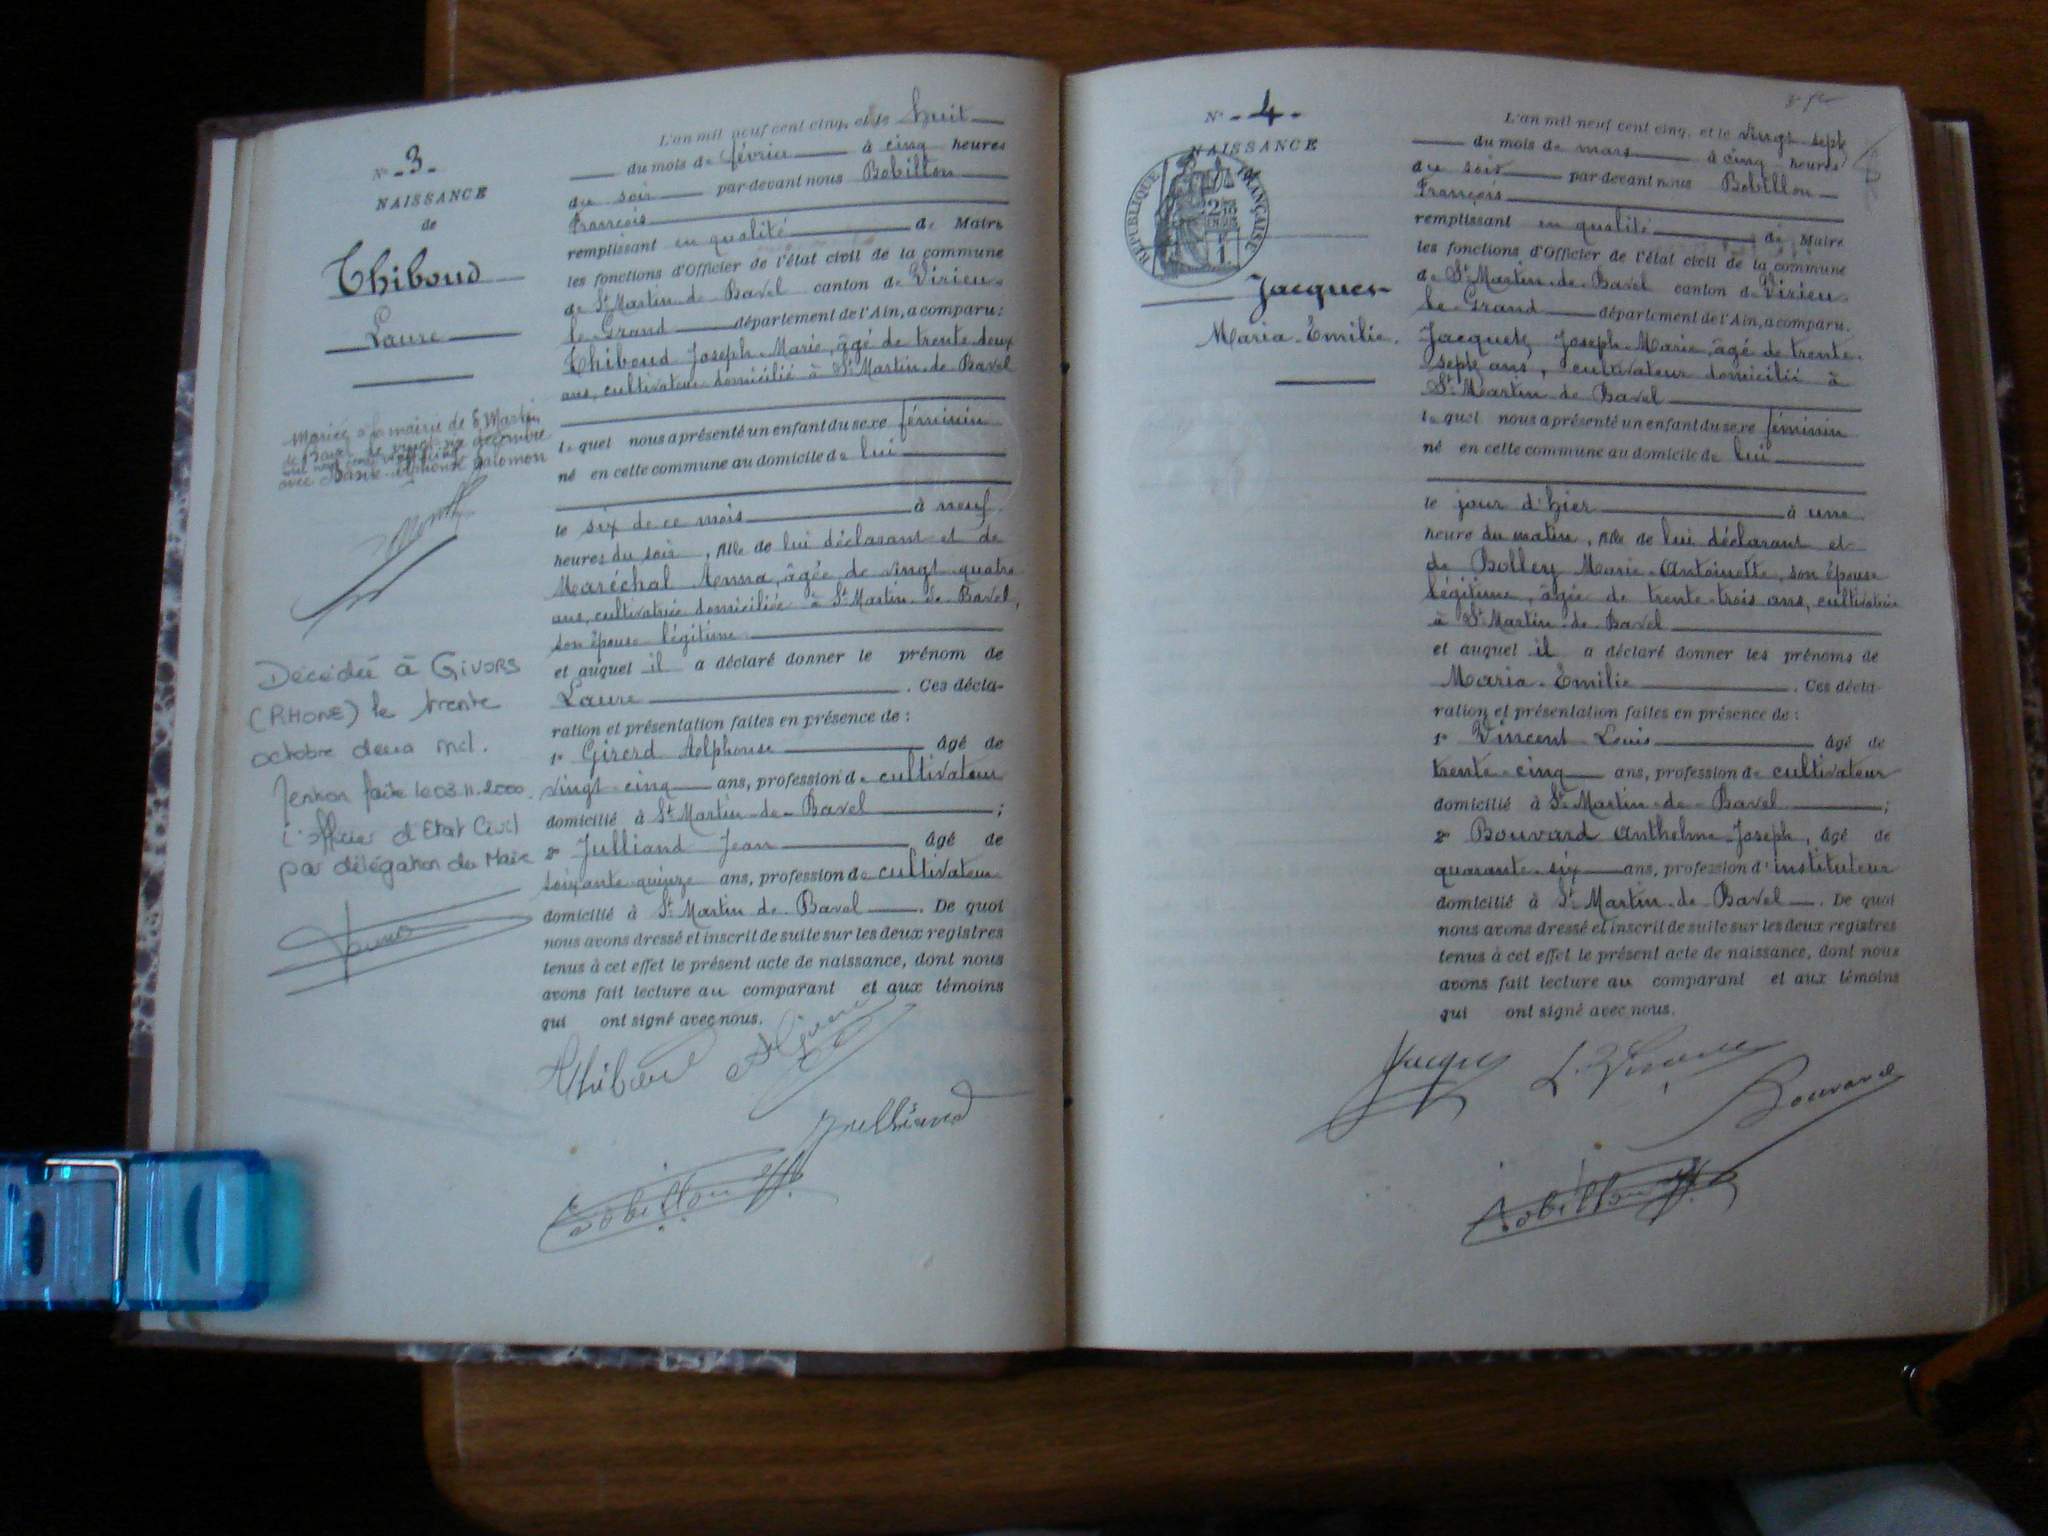 N° - 3 -
NAISSANCE
de
Thiboud
Laure
Mariée à la mairie de St Martin
de Bavel le vingt six décembre
mil neuf cent vingt
avec Alphonse Salomon
Décédée à GIVORS
(RHONE) le trente
octobre deux mil.
Mention faite le 03.11.2000.
L'officier d'Etat Civil
par délégation du Maire
L'an mil neuf cent cinq, et le huit
du mois de février à cinq heures
du soir par-devant nous Bobillon
François
remplissant en qualité de Maire
les fonctions d'Officier de l'état civil de la commune
de St Martin-de-Bavel canton de Virieu-
le-Grand département de l'Ain, a comparu:
Thiboud Joseph-Marie, âgé de trente-deux
ans, cultivateur domicilié à St Martin-de-Bavel
lequel nous a présenté un enfant du sexe féminin
né en cette commune au domicile de lui
le six de ce mois à neuf
heures du soir, fille de lui déclarant et de
Maréchal Anna, âgée de vingt-quatre
ans, cultivatrice domiciliée à St Martin-de-Bavel,
son épouse légitime
et auquel il a déclaré donner le prénom de
Laure . Ces décla-
ration et présentation faites en présence de :
1° Girerd Alphonse âgé de
vingt-cinq ans, profession de cultivateur
domicilié à St Martin-de-Bavel ;
2° Julliand Jean âgé de
soixante-quinze ans, profession de cultivateur
domicilié à St Martin-de-Bavel . De quoi
nous avons dressé et inscrit de suite sur les deux registres
tenus à cet effet le présent acte de naissance, dont nous
avons fait lecture au comparant et aux témoins
qui ont signé avec nous.
Thiboud A Girerd
Julliand
Bobillon ff
N° - 4 -
NAISSANCE
RÉPUBLIQUE FRANÇAISE
Jacques
Maria-Emilie.
L'an mil neuf cent cinq, et le vingt-sept
du mois de mars à cinq heures
du soir par-devant nous Bobillon
François
remplissant en qualité de Maire
les fonctions d'Officier de l'état civil de la commune
de St Martin-de-Bavel canton de Virieu-
le-Grand département de l'Ain, a comparu:
Jacques Joseph-Marie, âgé de trente-
sept ans, cultivateur domicilié à
St Martin de Bavel
lequel nous a présenté un enfant du sexe féminin
né en cette commune au domicile de lui
le jour d'hier à une
heure du matin, fille de lui déclarant et
de Bolley Marie-Antoinette, son épouse
légitime, âgée de trente-trois ans, cultivatrice
à St Martin-de-Bavel
et auquel il a déclaré donner les prénoms de
Maria-Emilie . Ces décla-
ration et présentation faites en présence de :
1° Vincent Louis âgé de
trente-cinq ans, profession de cultivateur
domicilié à St Martin-de-Bavel ;
2° Bouvard Anthelme-Joseph, âgé de
quarante-six ans, profession d'instituteur
domicilié à St Martin-de-Bavel . De quoi
nous avons dressé et inscrit de suite sur les deux registres
tenus à cet effet le présent acte de naissance, dont nous
avons fait lecture au comparant et aux témoins
qui ont signé avec nous.
Jacques L. Vincent
Bouvard
Bobillon ff